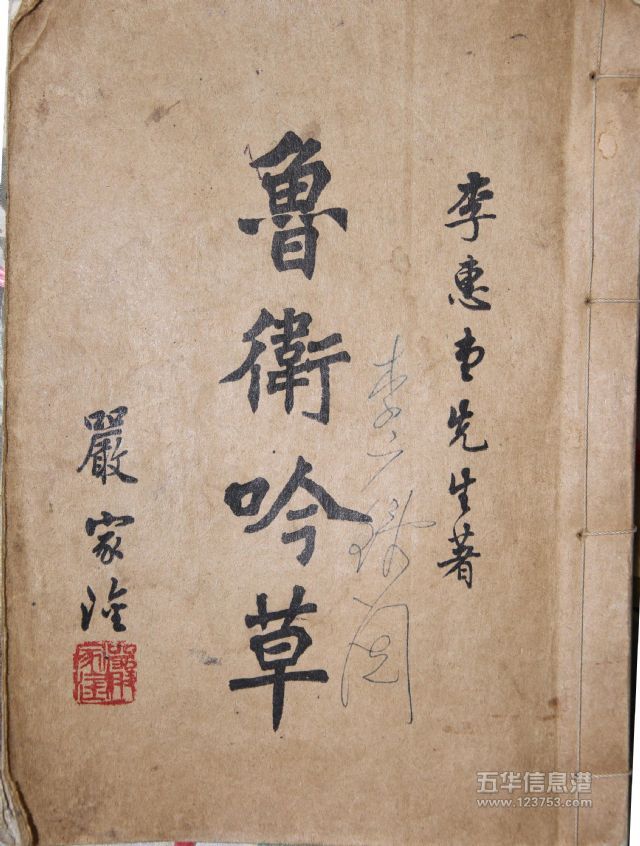 李惠堂先生著
魯衛吟草
嚴家淦
五华信息港
www.123753.com